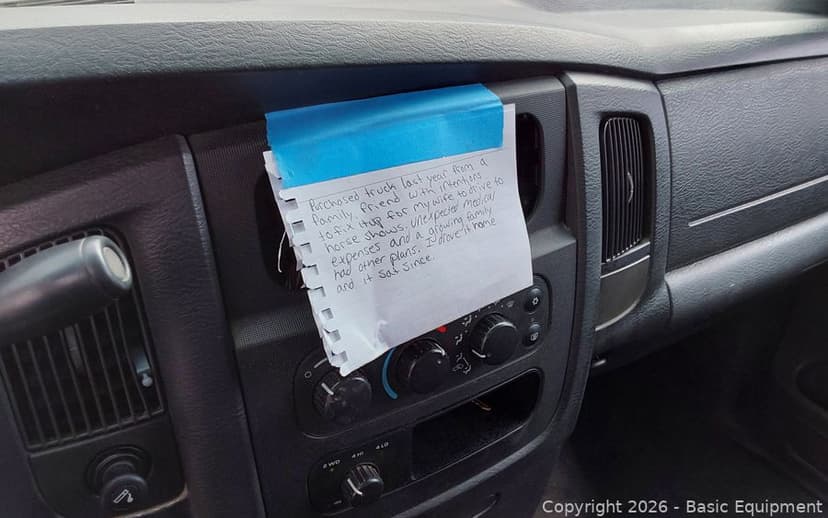 Purchased truck last year from a
family friend with intentions
to fix it up for my wife to drive to
horse shows. Unexpected medical
expenses and a growing family
had other plans. I drove it home
and it sat since.
2WD 4HI 4LO
Copyright 2026 - Basic Equipment